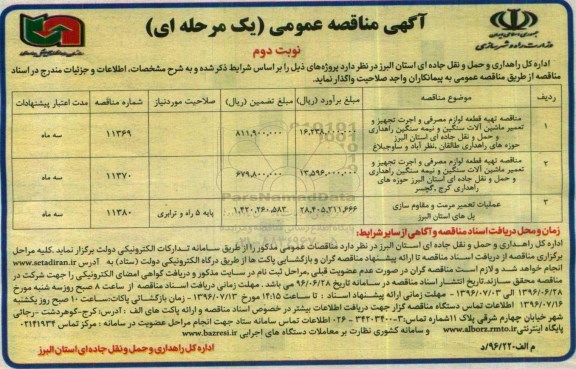 آگهی مناقصه عمومی (یک مرحله ای)
نوبت دوم
وزارت راه و شهرسازی
اداره کل راهداری و حمل و نقل جاده ای استان البرز در نظر دارد پروژه‌های ذیل را بر اساس شرایط ذکر شده و به شرح مشخصات، اطلاعات و جزئیات مندرج در اسناد
مناقصه از طریق مناقصه عمومی به پیمانکاران واجد صلاحیت واگذار نماید.
ردیف موضوع مناقصه مبلغ برآورد (ریال) مبلغ تضمین (ریال) صلاحیت موردنیاز شماره مناقصه مدت اعتبار پیشنهادات
۱ مناقصه تهیه قطعه لوازم مصرفی و اجرت تجهیز و
تعمیر ماشین آلات سنگین و نیمه سنگین راهداری
و حمل و نقل جاده ای استان البرز
حوزه های راهداری طالقان، نظر آباد و ساوجبلاغ
۱۶,۲۳۸,۰۰۰,۰۰۰ ۸۱۱,۹۰۰,۰۰۰ ۱۱۳۶۹ سه ماه
۲ مناقصه تهیه قطعه لوازم مصرفی و اجرت تجهیز و
تعمیر ماشین آلات سنگین و نیمه سنگین راهداری
و حمل و نقل جاده ای استان البرز حوزه های
راهداری کرج، گچسر
۱۳,۵۹۶,۰۰۰,۰۰۰ ۶۷۹,۸۰۰,۰۰۰ ۱۱۳۷۰ سه ماه
۳ عملیات تعمیر مرمت و مقاوم سازی
پل های استان البرز
۲۸,۴۰۵,۲۱۱,۶۶۶ ۱,۴۲۰,۲۶۰,۵۸۳ پایه ۵ راه و ترابری ۱۱۳۸۰ سه ماه
زمان و محل دریافت اسناد مناقصه و آگاهی از سایر شرایط:
اداره کل راهداری و حمل و نقل جاده ای استان البرز در نظر دارد مناقصات عمومی مذکور را از طریق سامانه تدارکات الکترونیکی دولت برگزار نماید. کلیه مراحل
برگزاری مناقصه از دریافت اسناد مناقصه تا ارائه پیشنهاد مناقصه گران و بازگشایی پاکت ها از طریق درگاه الکترونیکی دولت (ستاد) به آدرس www.setadiran.ir
انجام خواهد شد و لازم است مناقصه گران در صورت عدم عضویت قبلی، مراحل ثبت نام در سایت مذکور و دریافت گواهی امضای الکترونیکی را جهت شرکت در
مناقصه محقق سازند. تاریخ انتشار اسناد مناقصه در سامانه تاریخ ۹۶/۰۶/۲۸ می باشد. مهلت زمانی دریافت اسناد مناقصه از ساعت ۸ صبح روز سه شنبه مورخ
۱۳۹۶/۰۶/۲۸ الی ۱۳۹۶/۰۷/۰۳ - مهلت زمانی ارائه پیشنهاد اسناد: تا ساعت ۱۴:۱۵ مورخ ۱۳۹۶/۰۷/۱۳ - زمان بازگشائی پاکات: ساعت ۱۰ صبح روز یکشنبه
۱۳۹۶/۰۷/۱۶ اطلاعات تماس دستگاه مناقصه گزار جهت دریافت اطلاعات بیشتر در خصوص اسناد مناقصه و ارائه پاکت های الف: آدرس: کرج-گوهردشت-رجائی
شهر خیابان چهارم شرقی پلاک ۱۱ شماره تماس: ۳-۳۴۲۰۳۴۰۰-۰۲۶ اطلاعات تماس سامانه ستاد جهت انجام مراحل عضویت در سامانه: مرکز تماس ۰۲۱۴۱۹۳۴
پایگاه اینترنتی www.alborz.rmto.ir و سامانه کشوری نظارت بر معاملات دستگاه های اجرایی www.bazresi.ir
م الف ۹۶/۲۲۰/د
اداره کل راهداری و حمل و نقل جاده ای استان البرز
ParsNamadData